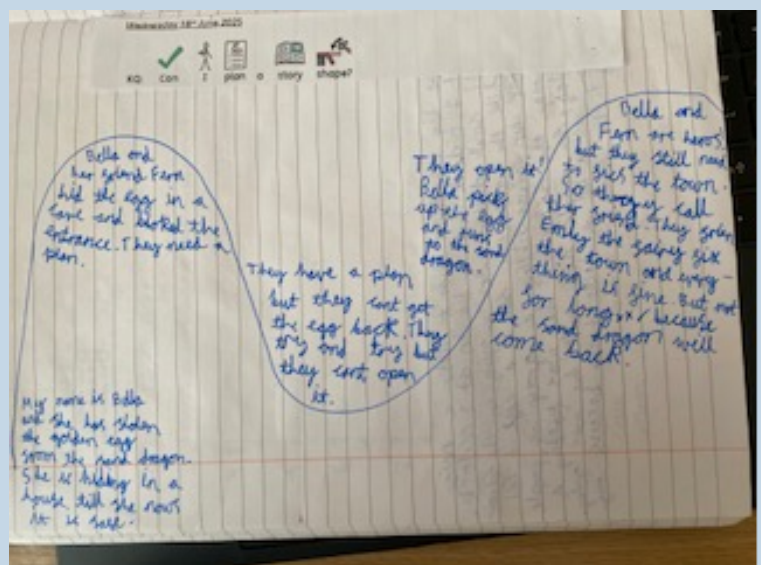 Wednesday 18th June 2025
KQ Can I plan a story shape?
My name is Bella
and she has stolen
the golden egg
from the sand dragon.
She is hiding in a
house till she nows
it is safe.
Bella and
her friend Fern
hid the egg in a
cave and the
entrance. They need a
plan.
They have a plan
but they cant get
the egg back. They
try and try but
they cant open
it.
They open it!
Bella picks
up the egg
and runs
to the sand
dragon.
Bella and
Fern are heros
but they still need
to the town.
So call
ther friend. They
Emley the six
the town and every-
thing is fine. But not
for long because
the sand dragon well
come back.